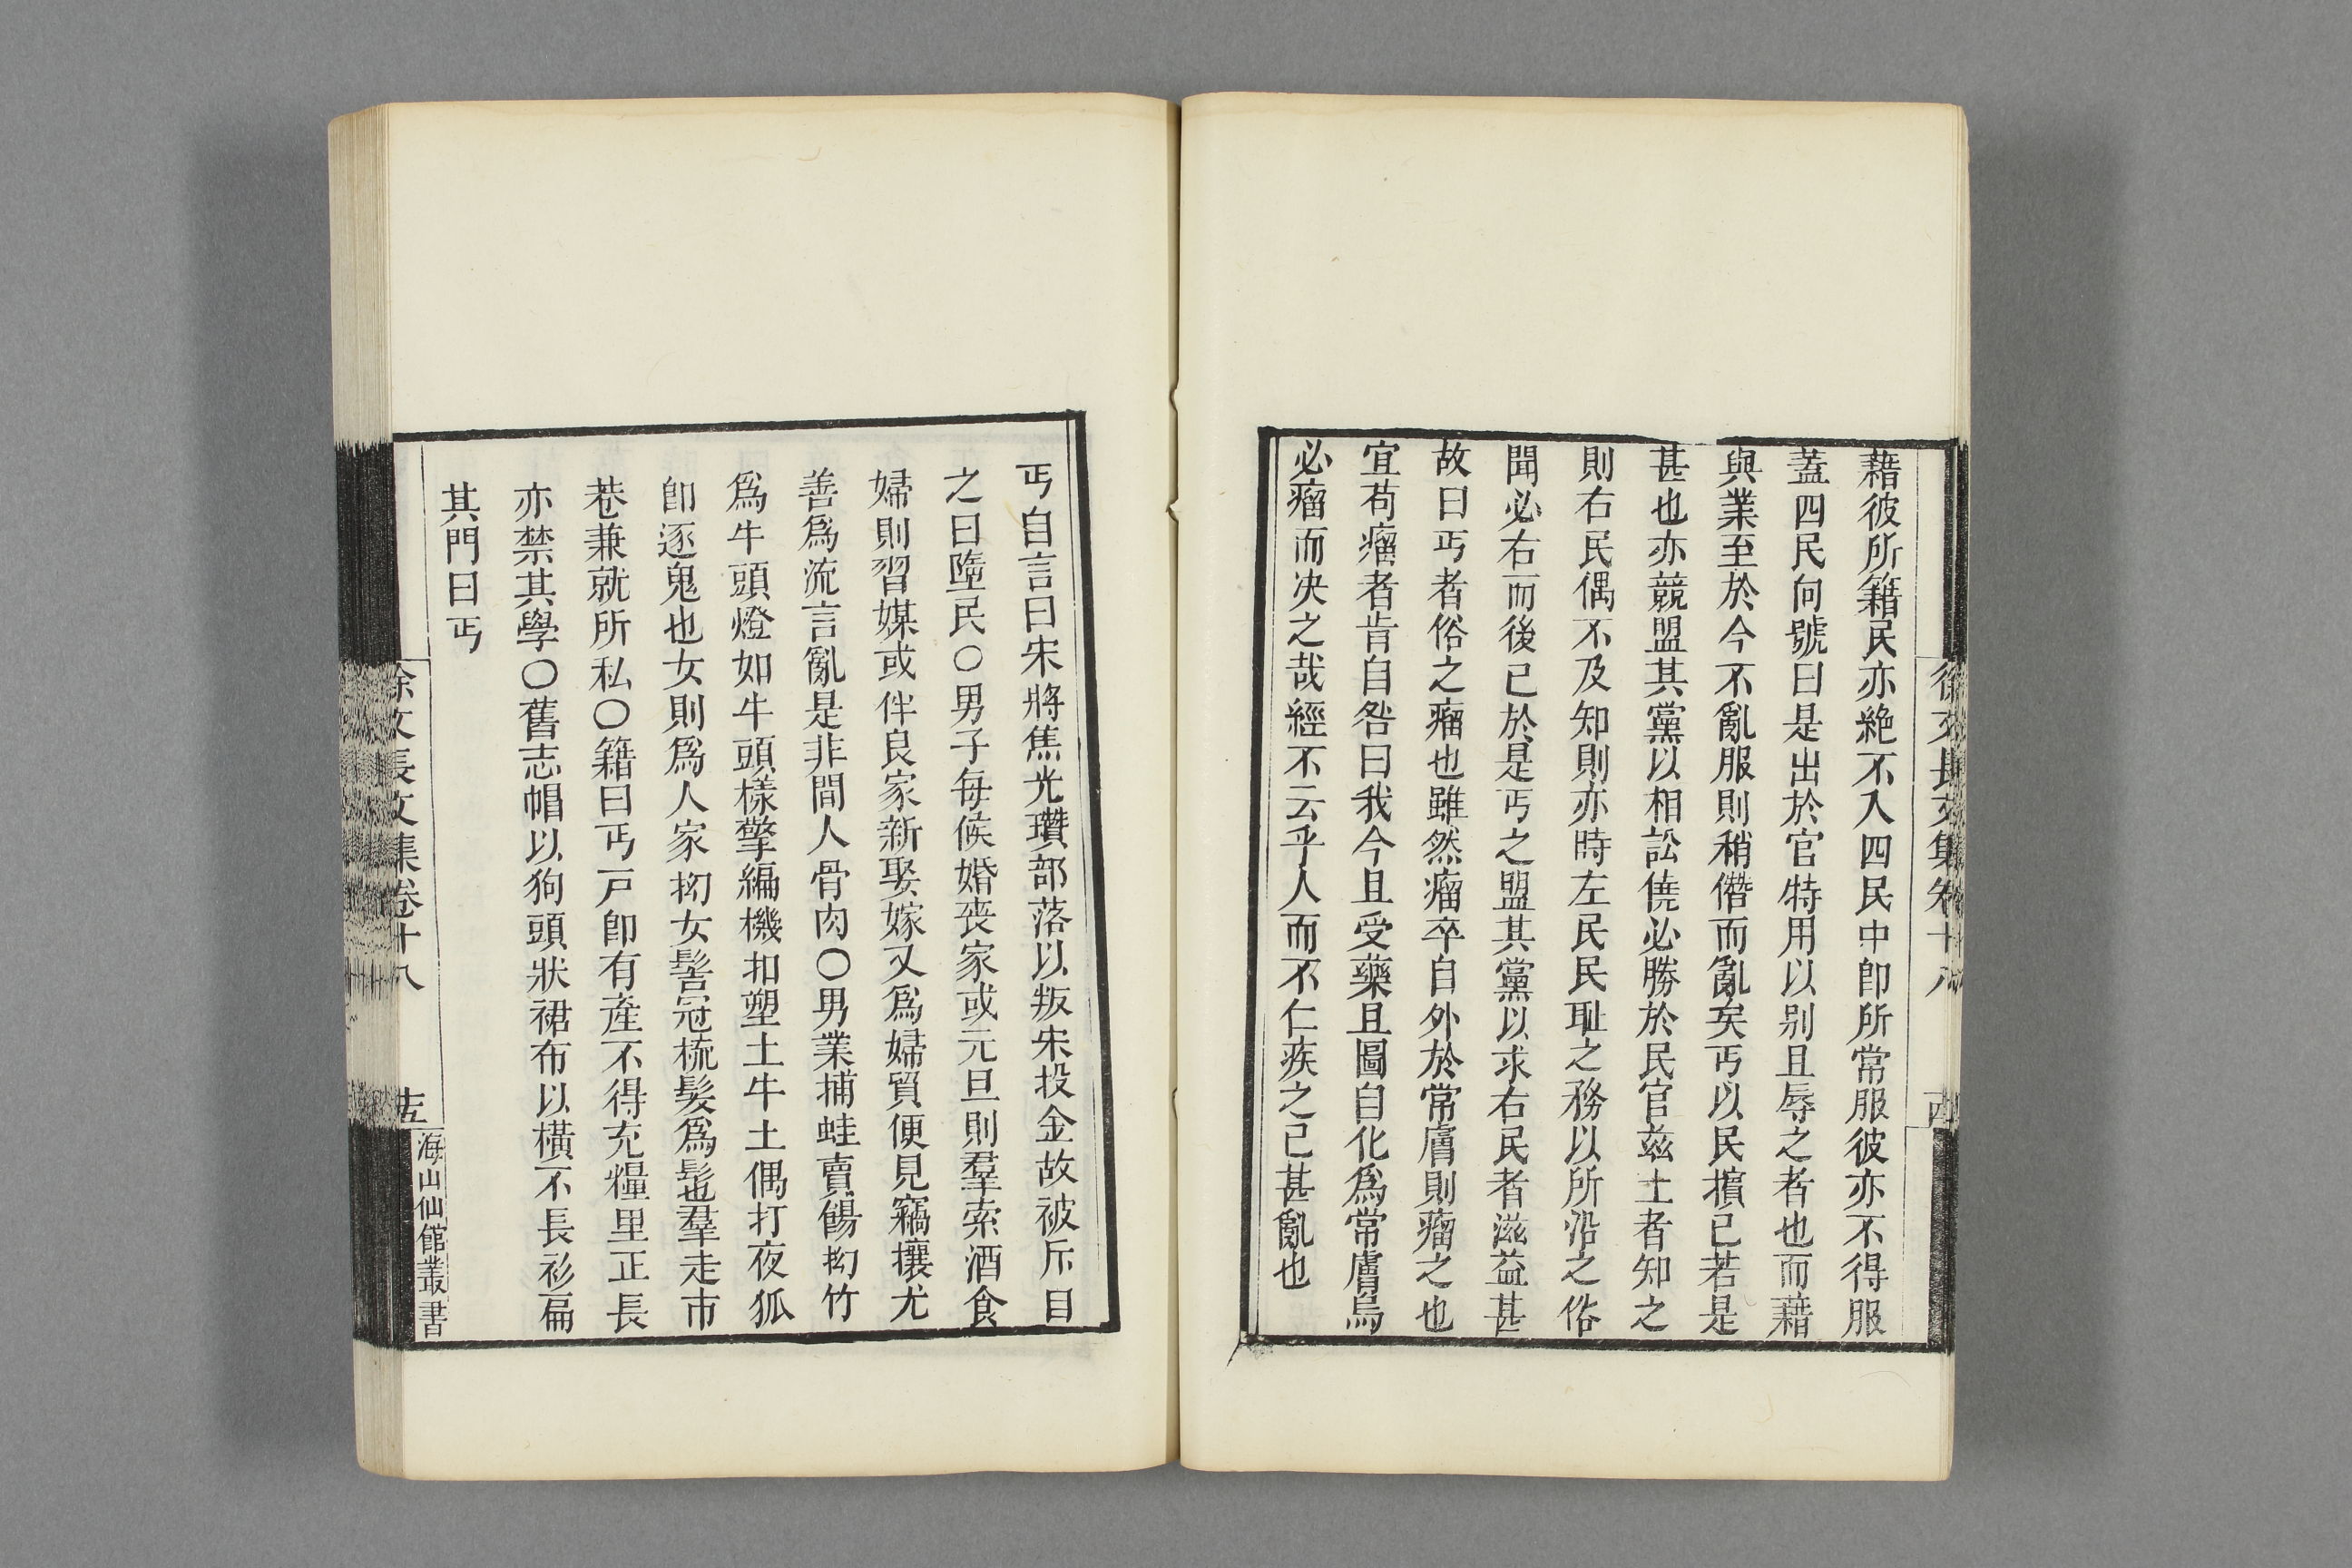 藉彼所籍民亦絶不入四民中卽所常服彼亦不得服
蓋四民向號曰是出於官特用以别且辱之者也而藉
與業至於今不亂服則稍僭而亂矣丐以民擯已若是
甚也亦競盟其黨以相訟僥必勝於民官兹土者知之
則右民偶不及知則亦時左民民耻之務以所沿之俗
聞必右而後已於是丐之盟其黨以求右民者滋益甚
故曰丐者俗之瘤也雖然瘤卒自外於常膚則瘤之也
宜苟瘤者肯自咎曰我今且受藥且圖自化爲常膚烏
必瘤而决之哉經不云乎人而不仁疾之已甚亂也
徐文長文集卷十八
丐自言曰宋將焦光瓚部落以叛宋投金故被斥目
之曰墮民○男子每候婚喪家或元旦則羣索酒食
婦則習媒或伴良家新娶嫁又爲婦貿便見竊攘尤
善爲流言亂是非間人骨肉○男業捕蛙賣餳拗竹
爲牛頭燈如牛頭樣擎編機扣塑土牛土偶打夜狐
卽逐鬼也女則爲人家拗女髻冠梳髮爲髢羣走市
巷兼就所私○籍曰丐戸卽有產不得充糧里正長
亦禁其學○舊志帽以狗頭狀裙布以橫不長衫扁
其門曰丐
徐文長文集卷十八
海山仙館叢書